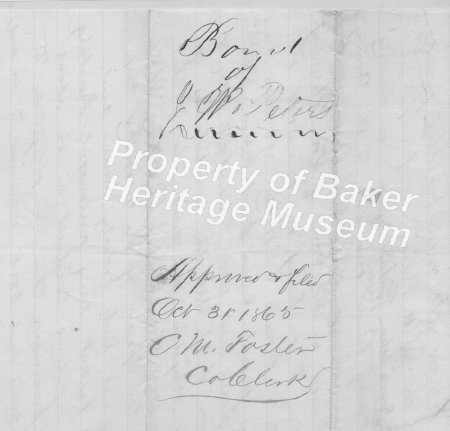 Bond
of
J. W. Peters
Property of Baker
Heritage Museum
Approved & filed
Oct 31 1865
O M. Foster
Co Clerk